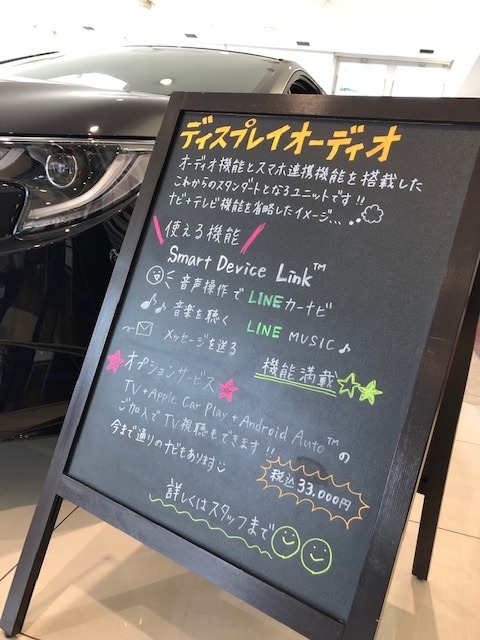 ディスプレイオーディオ
オーディオ機能とスマホ連携機能を搭載した
これからのスタンダードとなるユニットです!!
ナビ+テレビ機能を省略したイメージ、、、
使える機能
Smart Device Link™
音声操作でLINEカーナビ
音楽を聴く LINE MUSIC♪
メッセージを送る
機能満載
オプションサービス
TV+Apple Car Play+Android Auto™の
ご加入でTV視聴もできます!!
今まで通りのナビもあります
税込33.000円
詳しくはスタッフまで